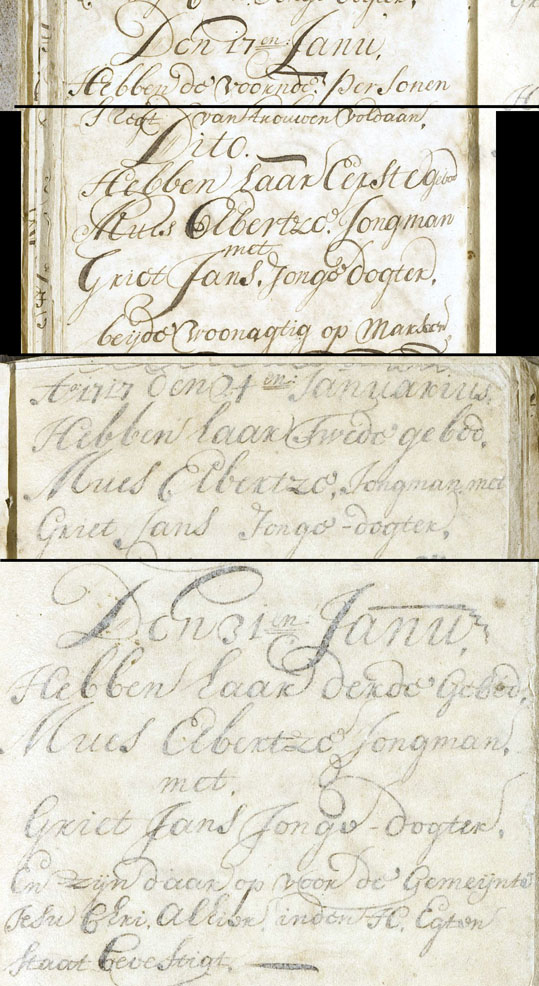 Den 17en Janu,
Hebben de voornde. Personen
't Regt van trouwen voldaan,
Dito.
Hebben haar Eerste gebod
Mues Elbertze. Jongman
met
Griet Jans. Jonge Dogter,
beyde woonagtig op Marken
Ao 1717 den 24en: Januarius.
Hebben haar Twede gebod.
Mues Elbertze, Jongman met
Griet Jans Jonge-dogter,
Den 31en Janu,
Hebben haar derde Gebod,
Mues Elbertze Jongman,
met.
Griet Jans Jonge-dogter,
En zijn daar op voor de Gemeijnte
Jesu Chri. alhier, inden H. Egten
Staat bevestigt.